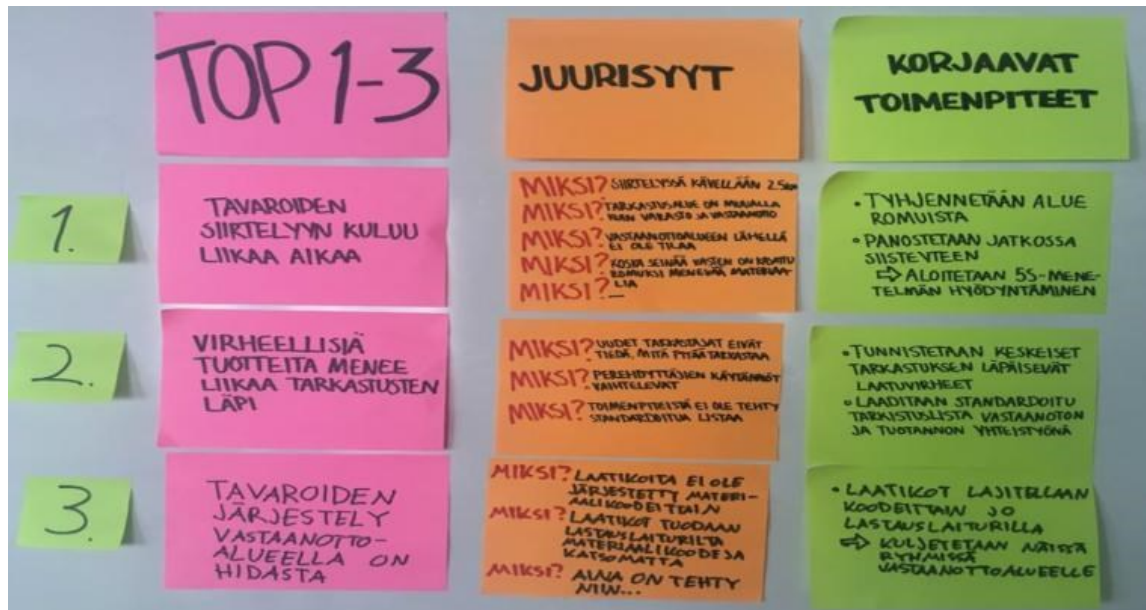 TOP 1-3
JUURISYYT
KORJAAVAT
TOIMENPITEET
1.
TAVAROIDEN
SIIRTELYYN KULUU
LIIKAA AIKAA
MIKSI? SIIRTELYSSÄ KÄVELLÄÄN 2.5km
MIKSI? TARKASTUSALUE ON MUUALLA
KUIN VARASTO JA VASTAANOTTO
MIKSI? VASTAANOTTOALUEEN LÄHELLÄ
EI OLE TILAA
MIKSI? KOSKA SEINÄÄ VASTEN ON KASATTU
ROMUKSI MENEVÄÄ MATERIAA-
LIA
MIKSI? ...
• TYHJENNETÄÄN ALUE
ROMUISTA
• PANOSTETAAN JATKOSSA
SIISTEYTEEN
⇨ ALOITETAAN 5S-MENE-
TELMÄN HYÖDYNTÄMINEN
2.
VIRHEELLISIÄ
TUOTTEITA MENEE
LIIKAA TARKASTUSTEN
LÄPI
MIKSI? UUDET TARKASTAJAT EIVÄT
TIEDÄ, MITÄ PITÄÄ TARKASTAA
MIKSI? PEREHDYTTÄJIEN KÄYTÄNNÖT
VAIHTELEVAT
MIKSI? TOIMENPITEISTÄ EI OLE TEHTY
STANDARDOITUA LISTAA
• TUNNISTETAAN KESKEISET
TARKASTUKSEN LÄPÄISEVÄT
LAATUVIRHEET
• LAADITAAN STANDARDOITU
TARKISTUSLISTA VASTAANOTON
JA TUOTANNON YHTEISTYÖNÄ
3.
TAVAROIDEN
JÄRJESTELY
VASTAANOTTO-
ALUEELLA ON
HIDASTA
MIKSI? LAATIKOITA EI OLE
JÄRJESTETTY MATERI-
AALIKOODEITTAIN
MIKSI? LAATIKOT TUODAAN
LASTAUSLAITURILTA
MATERIAALIKOODEJA
KATSOMATTA
MIKSI? AINA ON TEHTY
NIIN...
• LAATIKOT LAJITELLAAN
KOODEITTAIN JO
LASTAUSLAITURILLA
⇨ KULJETETAAN NÄISSÄ
RYHMISSÄ
VASTAANOTTOALUEELLE